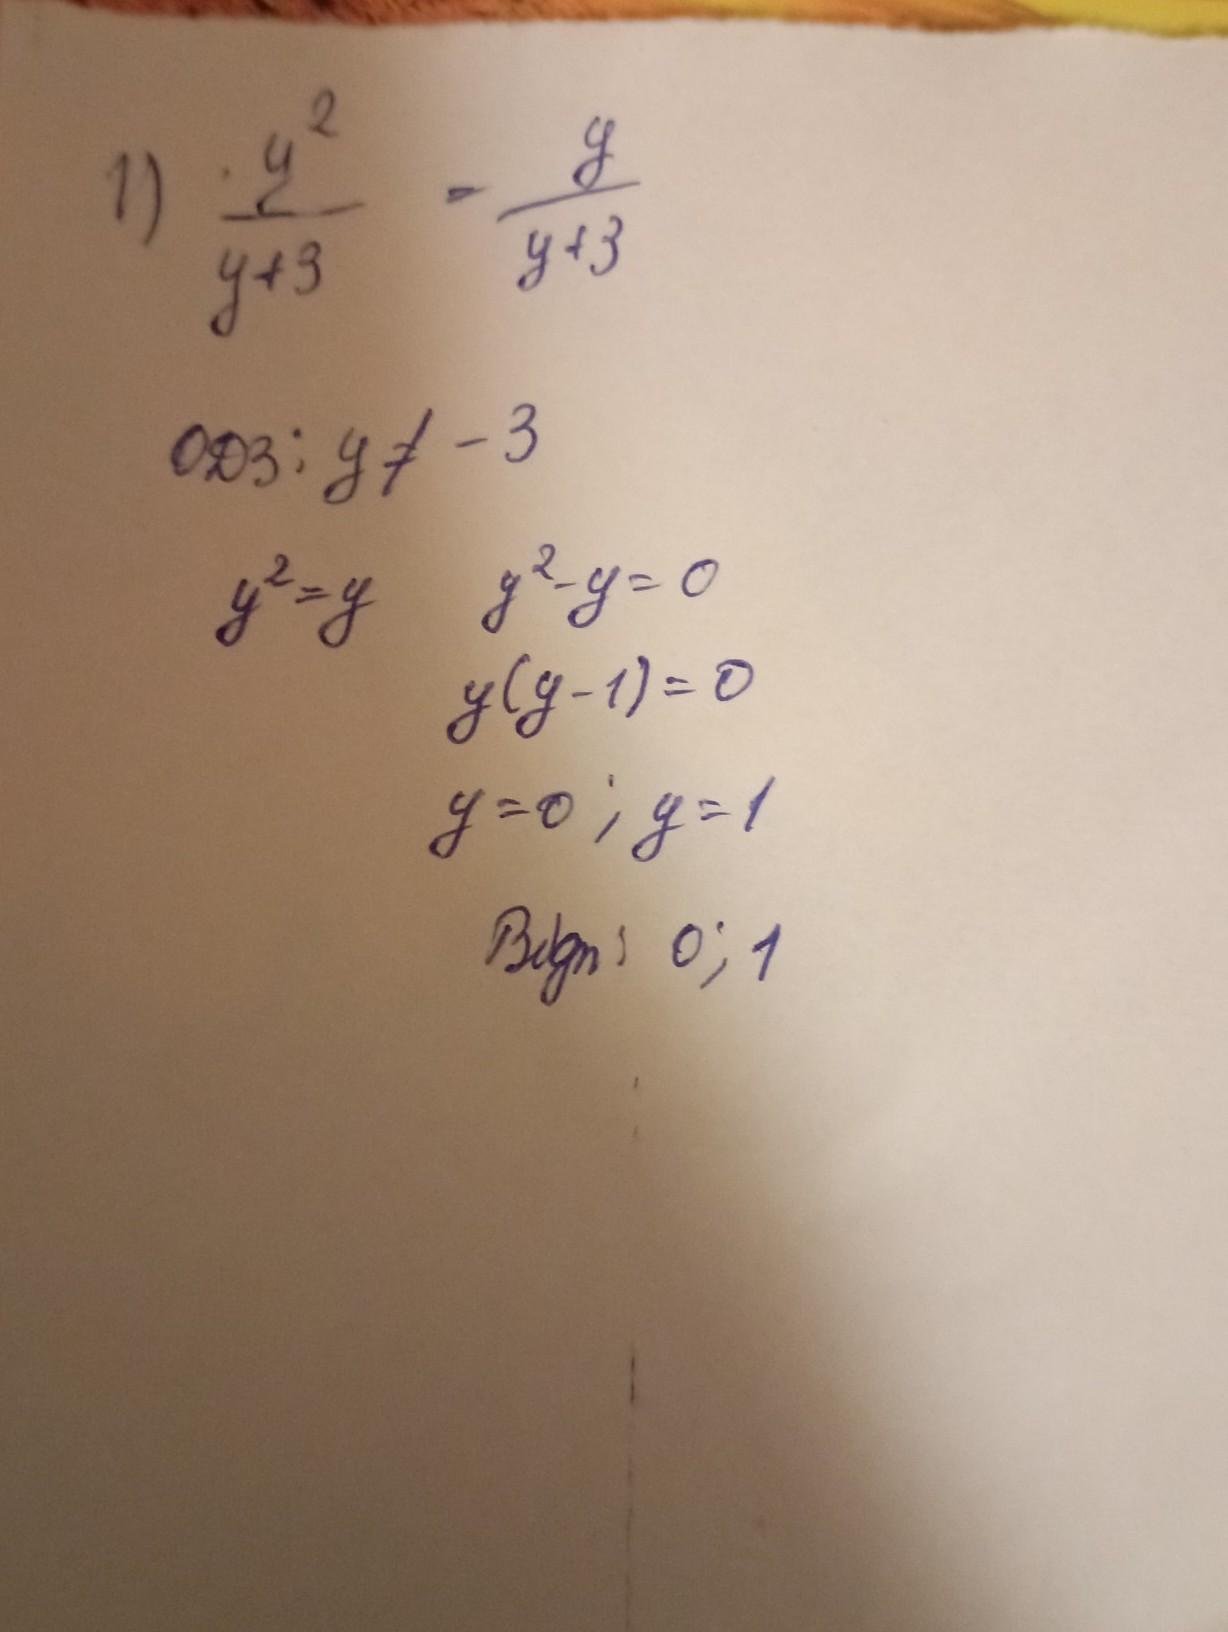 1) y²/(y+3) = y/(y+3)
ОДЗ: y ≠ -3
y² = y y² - y = 0
y(y - 1) = 0
y = 0; y = 1
Відп: 0; 1